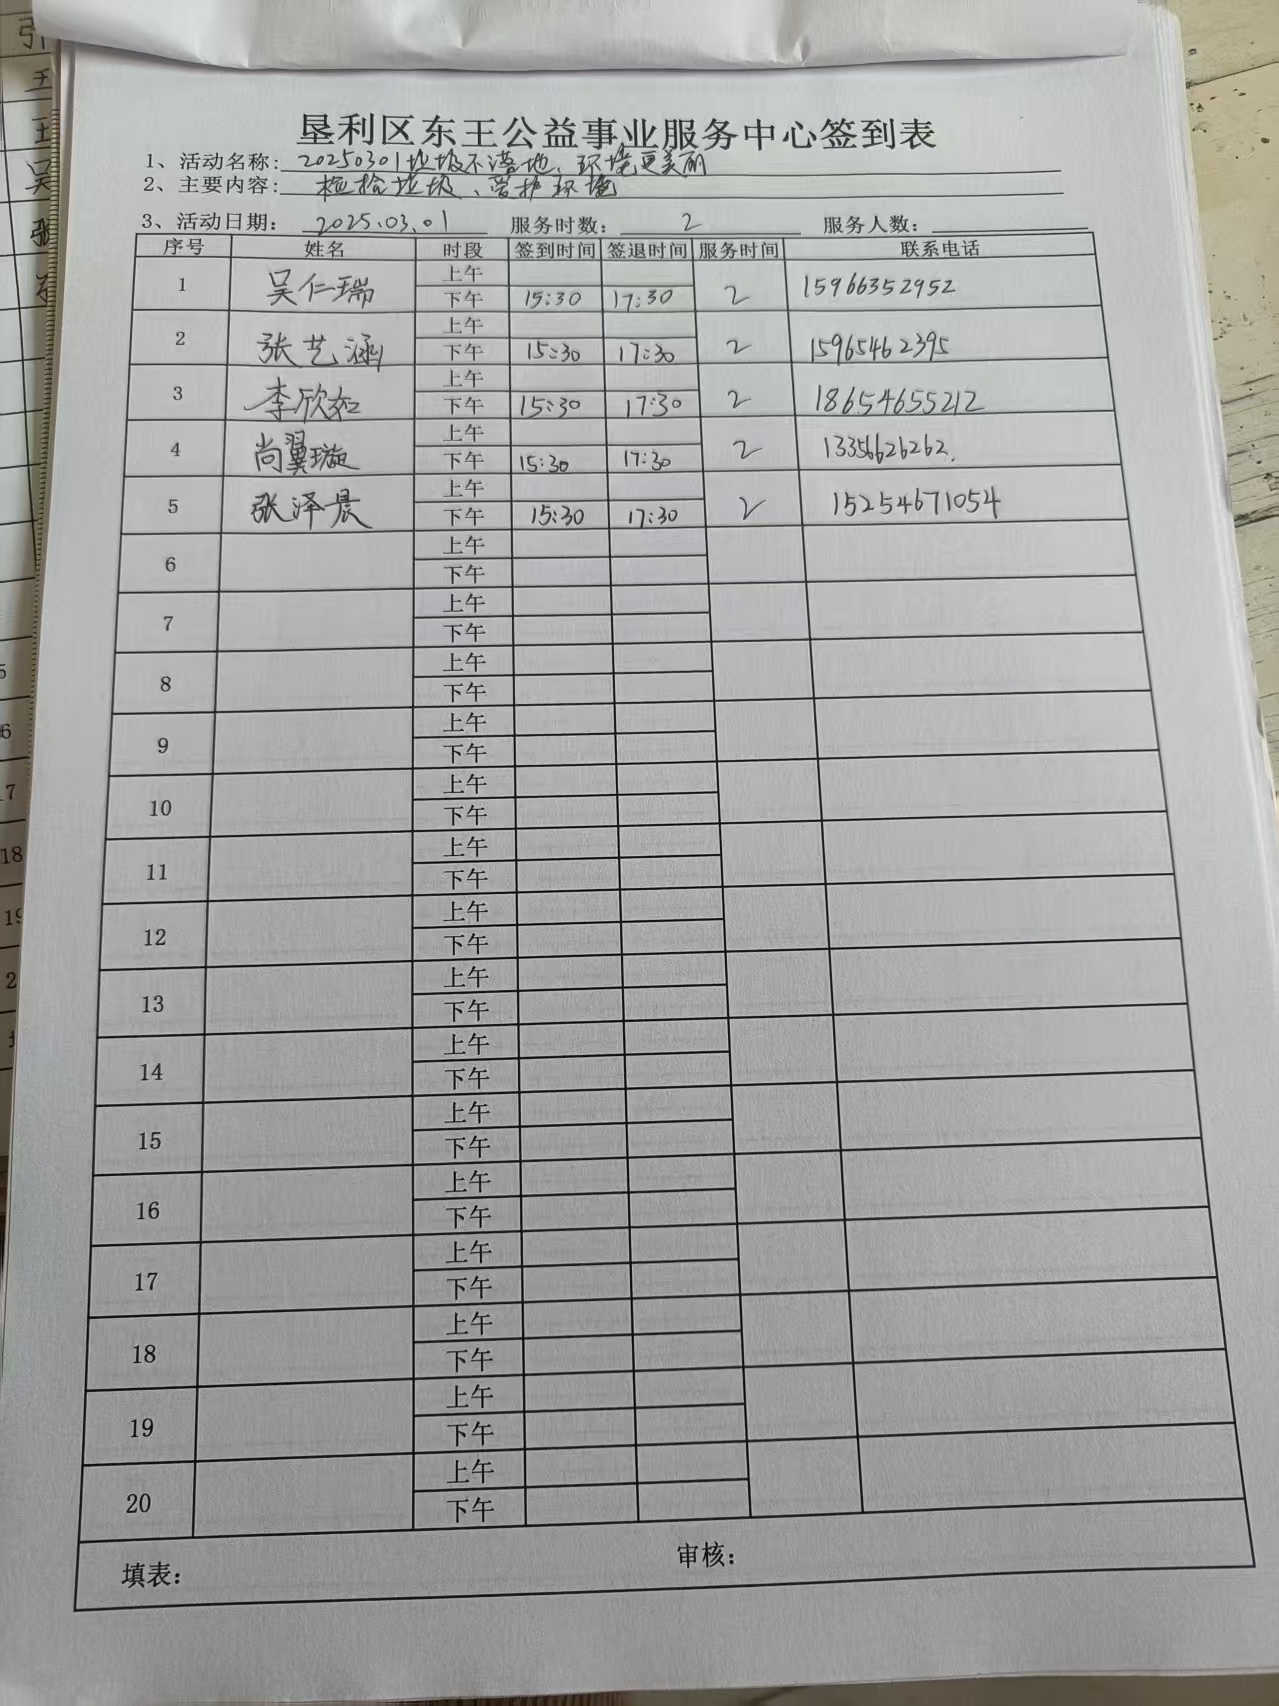 垦利区东王公益事业服务中心签到表
1、活动名称: 20250301垃圾不落地、环境更美丽
2、主要内容: 捡拾垃圾、爱护环境
3、活动日期: 2025.03.01 服务时数: 2 服务人数:
序号 姓名 时段 签到时间 签退时间 服务时间 联系电话
1 吴仁瑞 上午
下午 15:30 17:30 2 15966352952
2 张艺涵 上午
下午 15:30 17:30 2 15965462395
3 李欣如 上午
下午 15:30 17:30 2 18654655212
4 尚翼璇 上午
下午 15:30 17:30 2 13356626262.
5 张泽晨 上午
下午 15:30 17:30 2 15254671054
6 上午
下午
7 上午
下午
8 上午
下午
9 上午
下午
10 上午
下午
11 上午
下午
12 上午
下午
13 上午
下午
14 上午
下午
15 上午
下午
16 上午
下午
17 上午
下午
18 上午
下午
19 上午
下午
20 上午
下午
填表: 审核: